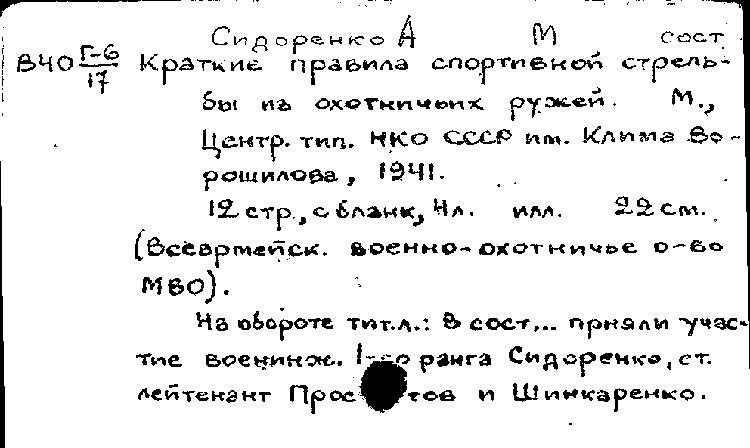 Сидоренко А М сост
В40 Г-6/17 Краткие правила спортивной стрель-
бы из охотничьих ружей. М.,
Центр. тип. НКО СССР им. Клима Во-
рошилова, 1941.
12 стр., с бланк, 4л. илл. 22 см.
(Всеармейск. военно-охотничье о-во
МВО).
На обороте тит.л.: В сост... приняли учас-
тие военинж. 1-го ранга Сидоренко, ст.
лейтенант и Шинкаренко.